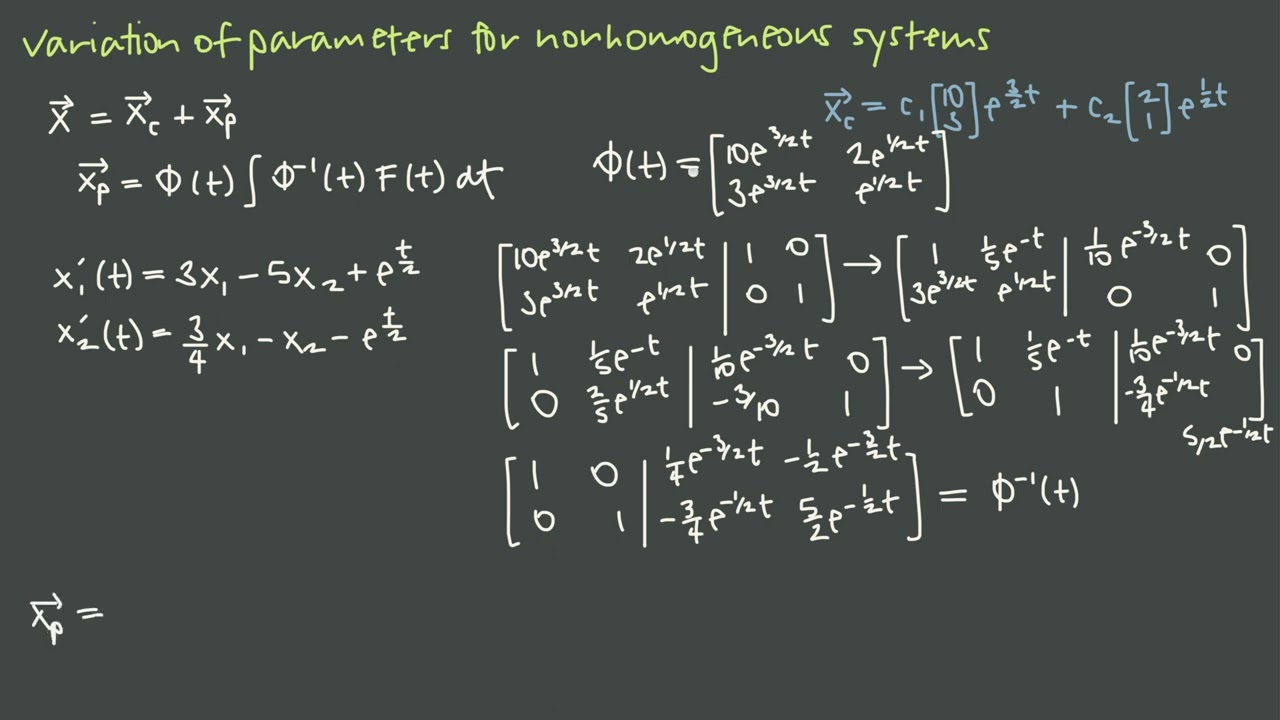 variation of parameters for nonhomogeneous systems
x⃗ = x⃗_c + x⃗_p
x⃗_c = c₁ [10; 3] e^{3/2 t} + c₂ [2; 1] e^{1/2 t}
x⃗_p = Φ(t) ∫ Φ⁻¹(t) F(t) dt
Φ(t) = [10e^{3/2 t} 2e^{1/2 t}; 3e^{3/2 t} e^{1/2 t}]
x₁′(t) = 3x₁ − 5x₂ + e^{t/2}
x₂′(t) = 3/4 x₁ − x₂ − e^{t/2}
[10e^{3/2 t} 2e^{1/2 t} | 1 0; 3e^{3/2 t} e^{1/2 t} | 0 1] → [1 1/5 e^{-t} | 1/10 e^{-3/2 t} 0; 3e^{3/2 t} e^{1/2 t} | 0 1]
[1 1/5 e^{-t} | 1/10 e^{-3/2 t} 0; 0 2/5 e^{1/2 t} | −3/10 1] → [1 1/5 e^{-t} | 1/10 e^{-3/2 t} 0; 0 1 | −3/4 e^{-1/2 t} 5/2 e^{-1/2 t}]
[1 0 | 1/4 e^{-3/2 t} −1/2 e^{-3/2 t}; 0 1 | −3/4 e^{-1/2 t} 5/2 e^{-1/2 t}] = Φ⁻¹(t)
x⃗_p =